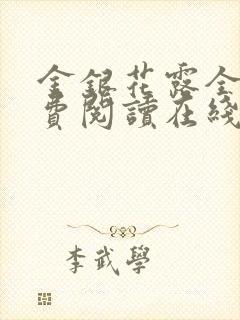 金銀花露全
費閱讀在綫
李武學